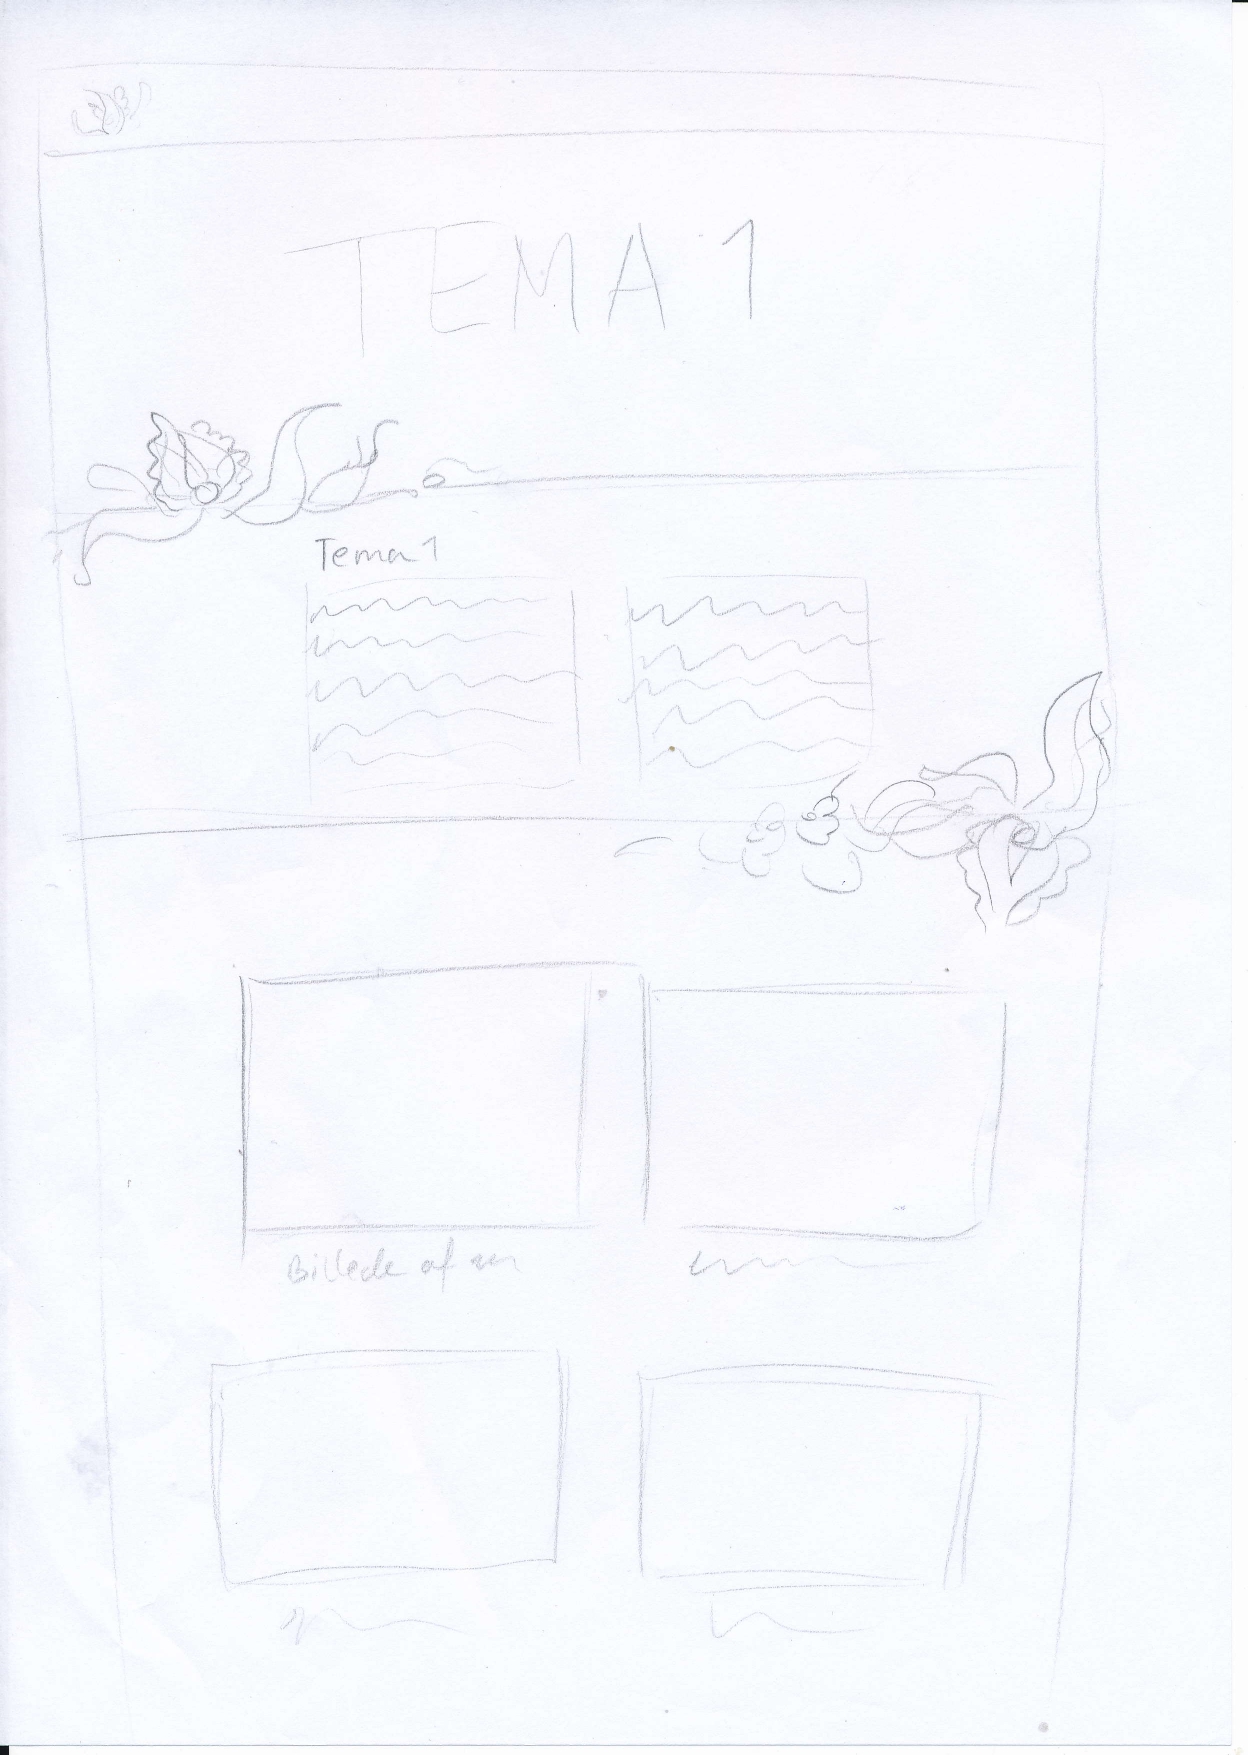 TEMA 1
Tema 1
Billede af